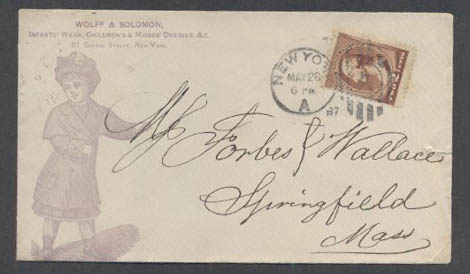 WOLFF & SOLOMON,
INFANTS' WEAR, CHILDREN'S & MISSES' DRESSES, &C.
61 GREENE STREET, NEW YORK.
NEW YORK
MAY 26
6 PM
A
87
2
Forbes & Wallace
Springfield
Mass